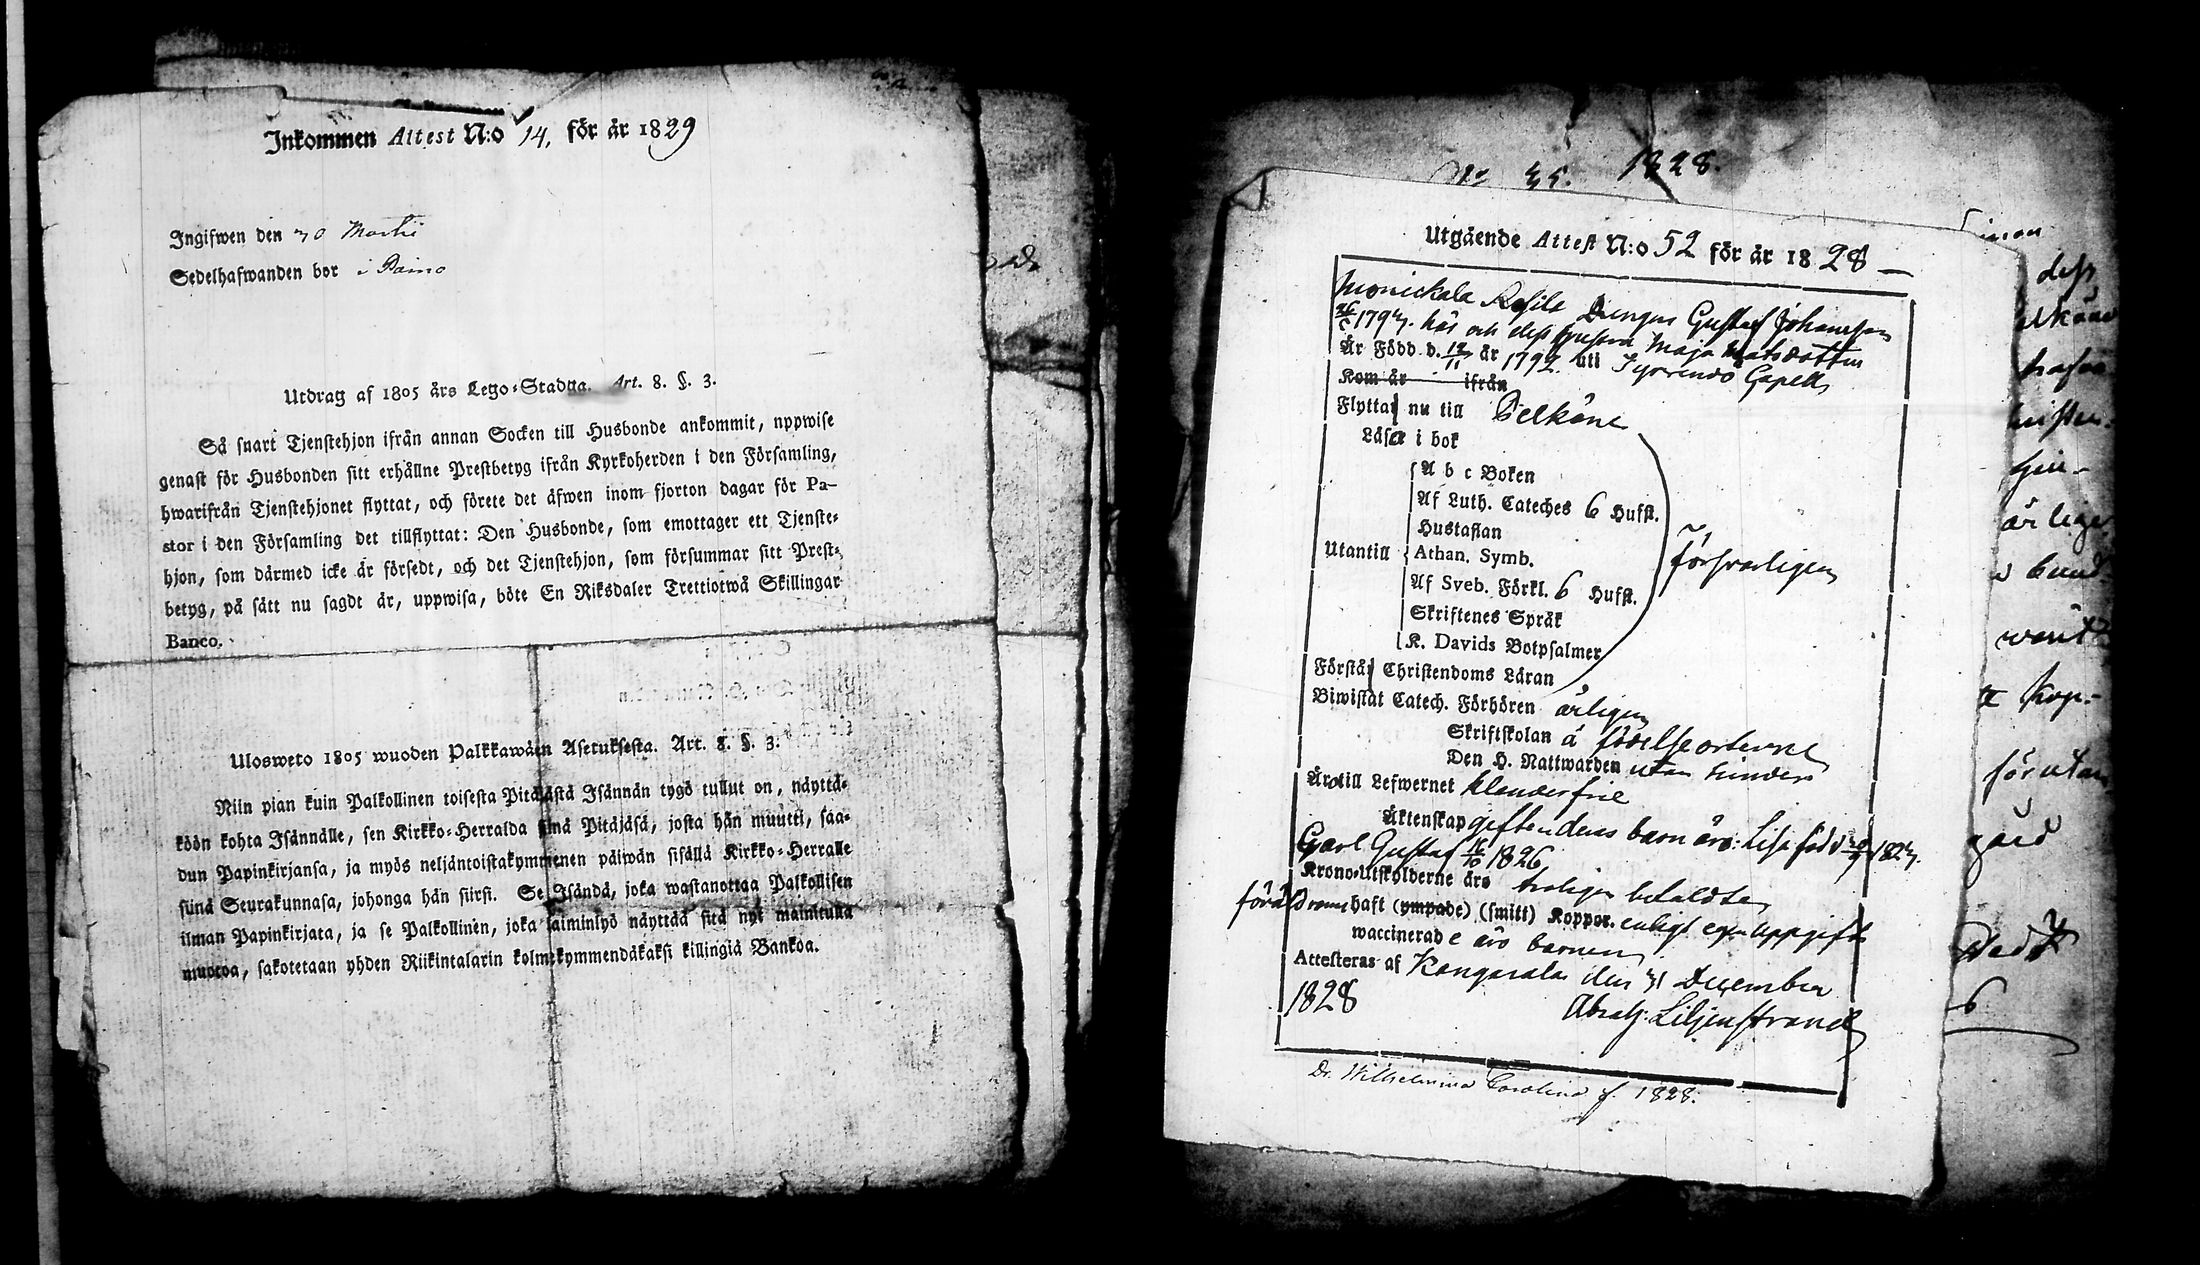 Inkommen Attest N:o 14, för år 1829
Ingifwen den 30 Martii
Sedelhafwanden bor i Paino
Utdrag af 1805 års Lego-Stadga. Art. 8. §. 3.
Så snart Tjenstehjon ifrån annan Socken till Husbonde ankommit, uppwise
genast för Husbonden sitt erhållne Prestbetyg ifrån Kyrkoherden i den Församling,
hwarifrån Tjenstehjonet flyttat, och förete det äfwen inom fjorton dagar för Pa-
stor i den Församling det tillflyttat: Den Husbonde, som emottager ett Tjenste-
hjon, som därmed icke är försedt, och det Tjenstehjon, som försummar sitt Prest-
betyg, på sätt nu sagdt är, uppwisa, böte En Riksdaler Trettiotwå Skillingar
Banco.
Ulosweto 1805 wuoden Palkkawäen Asetuksesta. Art. 8. §. 3.
Niin pian kuin Palkollinen toisesta Pitäjästä Isännän tygö tullut on, näyttä-
köön kohta Isännälle, sen Kirkko-Herralda siinä Pitäjäsä, josta hän muutti, saa-
dun Papinkirjansa, ja myös neljäntoistakymmenen päiwän sisällä Kirkko-Herralle
siinä Seurakunnasa, johonga hän siirsi. Se Isändä, joka wastanottaa Palkollisen
ilman Papinkirjata, ja se Palkollinen, joka laiminlyö näyttää sitä nyt mainittua
muotoa, sakotetaan yhden Riikintalarin kolmekymmendäkaksi killingiä Bankoa.
No 35. 1828.
Utgående Attest N:o 52 för år 1828
Drengen Gustaf Johansson
1797. här och dess hustru Maja Matsdotter
Är Född d. 12/11 år 1792. uti Capell
Kom år ifrån
Flyttar nu till Pelkäne
Läsa i bok
A b c Boken
Af Luth. Cateches 6 Hufst.
Hustaflan
Utantill Athan. Symb. försvarligen
Af Sveb. Förkl. 6 Hufst.
Skriftenes Språk
K. Davids Botpsalmer
Förstår Christendoms Läran
Biwistat Catech. Förhören årligen
Skriftskolan å födelseorterne
Den H. Nattwarden utan hinder
Äro till Lefwernet klanderfrie
Äktenskap gifte deras barn äro: Lisa född 1823.
Carl Gustaf 16/10 1826
Krono-Utskylderne äro betaldte
föräldrarne haft (ympade) (smitt) Koppor. enligt egen uppgift
waccinerade äro barnen
Attesteras af Kangasala den 31 December
1828 Abrah: Liljenstrand
Dr. Wilhelmina Carolina f. 1828.
dess
årlige
förutan